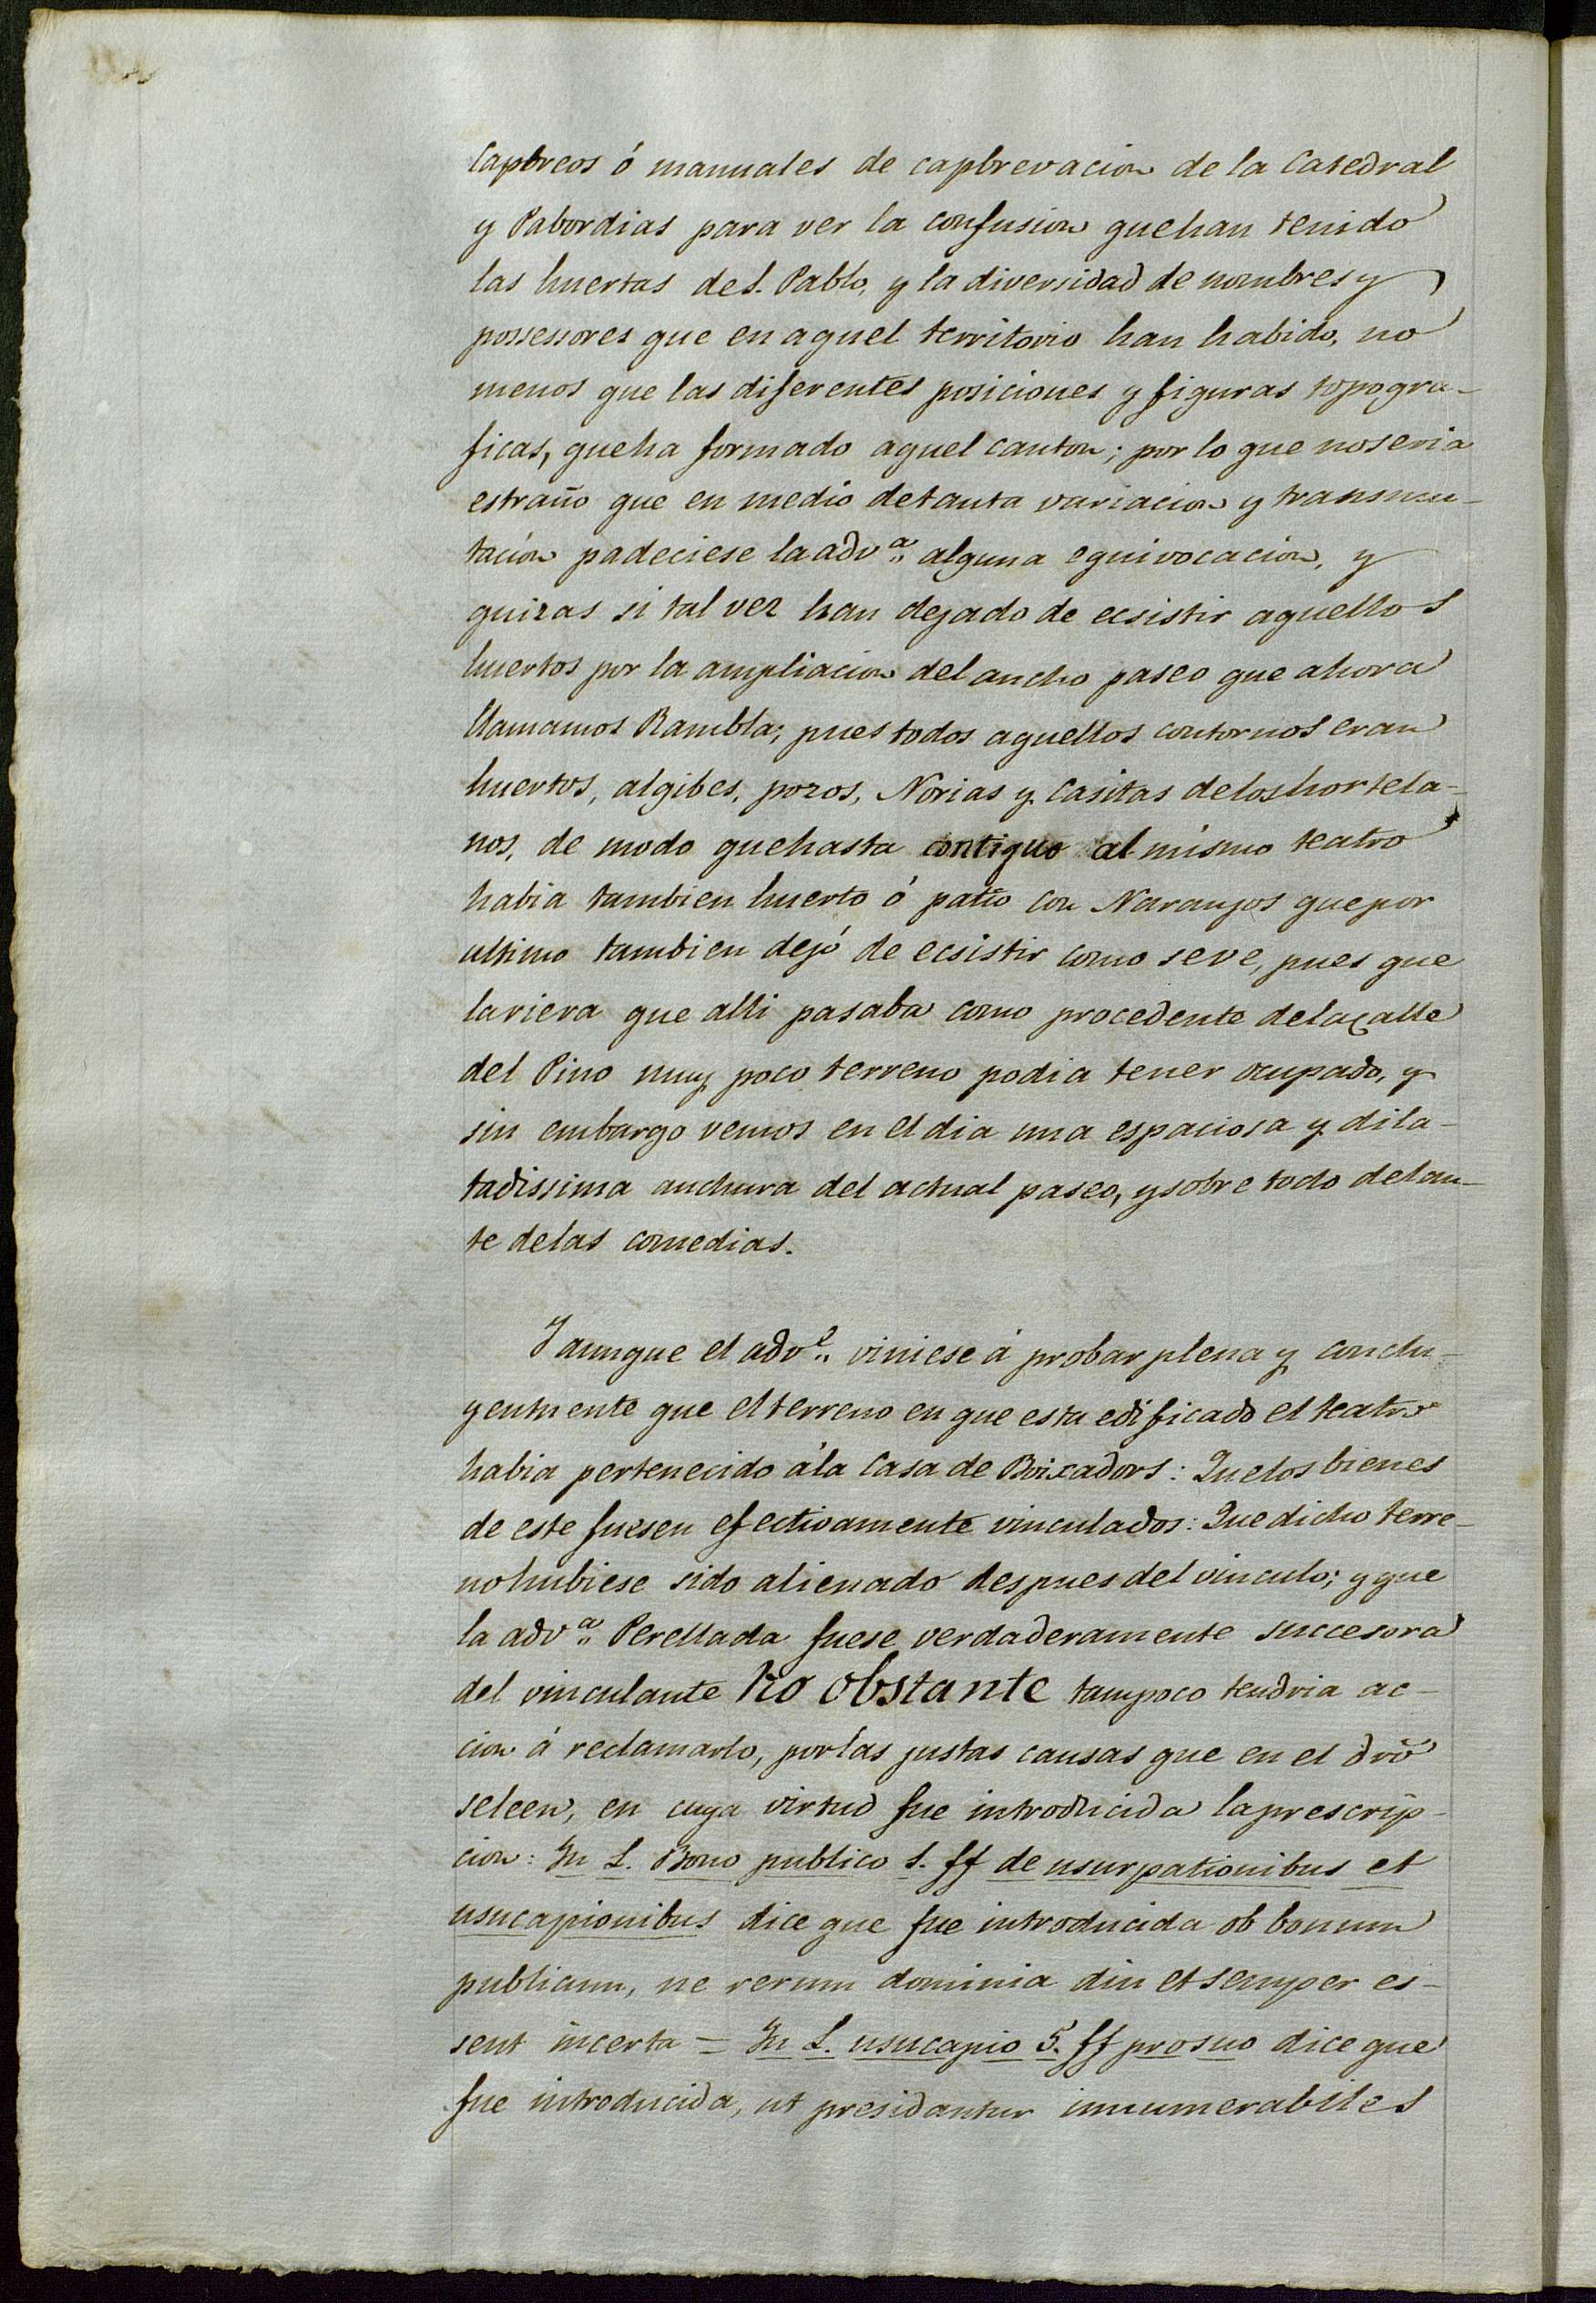 Capbreos ó manuales de capbrevacion de la Catedral
y Pabordias para ver la confusion quehan tenido
las huertas deS. Pablo, y la diversidad de nombres y
possessores que en aquel territorio han habido, no
menos que las diferentes posiciones y figuras topogra-
ficas, queha formado aquel canton; por lo que noseria
estraño que en medio detanta variacion y transmu-
tacion padeciese laadvª alguna equivocacion, y
quizas si tal vez han dejado de ecsistir aquellos
huertos por la ampliacion del ancho paseo que ahora
llamamos Rambla; pues todos aquellos contornos eran
huertos, algibes, pozos, Norias y Casitas deloshortela-
nos, de modo quehasta contiguo al mismo teatro
habia tambien huerto ó patio con Naranjos quepor
ultimo tambien dejó de ecsistir como seve, pues que
lariera que alli pasaba como procedente delacalle
del Pino muy poco terreno podia tener ocupado, y
sin embargo vemos en el dia una espaciosa y dila-
tadissima anchura del actual paseo, ysobre todo delan-
te delas comedias.
Y aunque el advᵉ viniese á probar plena y conclu-
yentmente que elterreno en que esta edificado el teatro
habia pertenecido ála Casa de Boixadors: Quelos bienes
de este fuesen efectivamente vinculados: Quedicho terre-
nohubiese sido alienado despues del vinculo; y que
la advª Perellada fuese verdaderamente succesora
del vinculante no obstante tampoco tendria ac-
cion á reclamarlo, porlas justas causas que en el dr̃o
seleen, en cuya virtud fue introducida laprescrip-
cion: In L. Bono publico 1. ff de usurpationibus et
usucapionibus dice que fue introducida ob bonum
publicum, ne rerum dominia diu et semper es-
sent incerta = In L. usucapio 5. ff prosuo dice que
fue introducida, ut presidantur innumerabiles